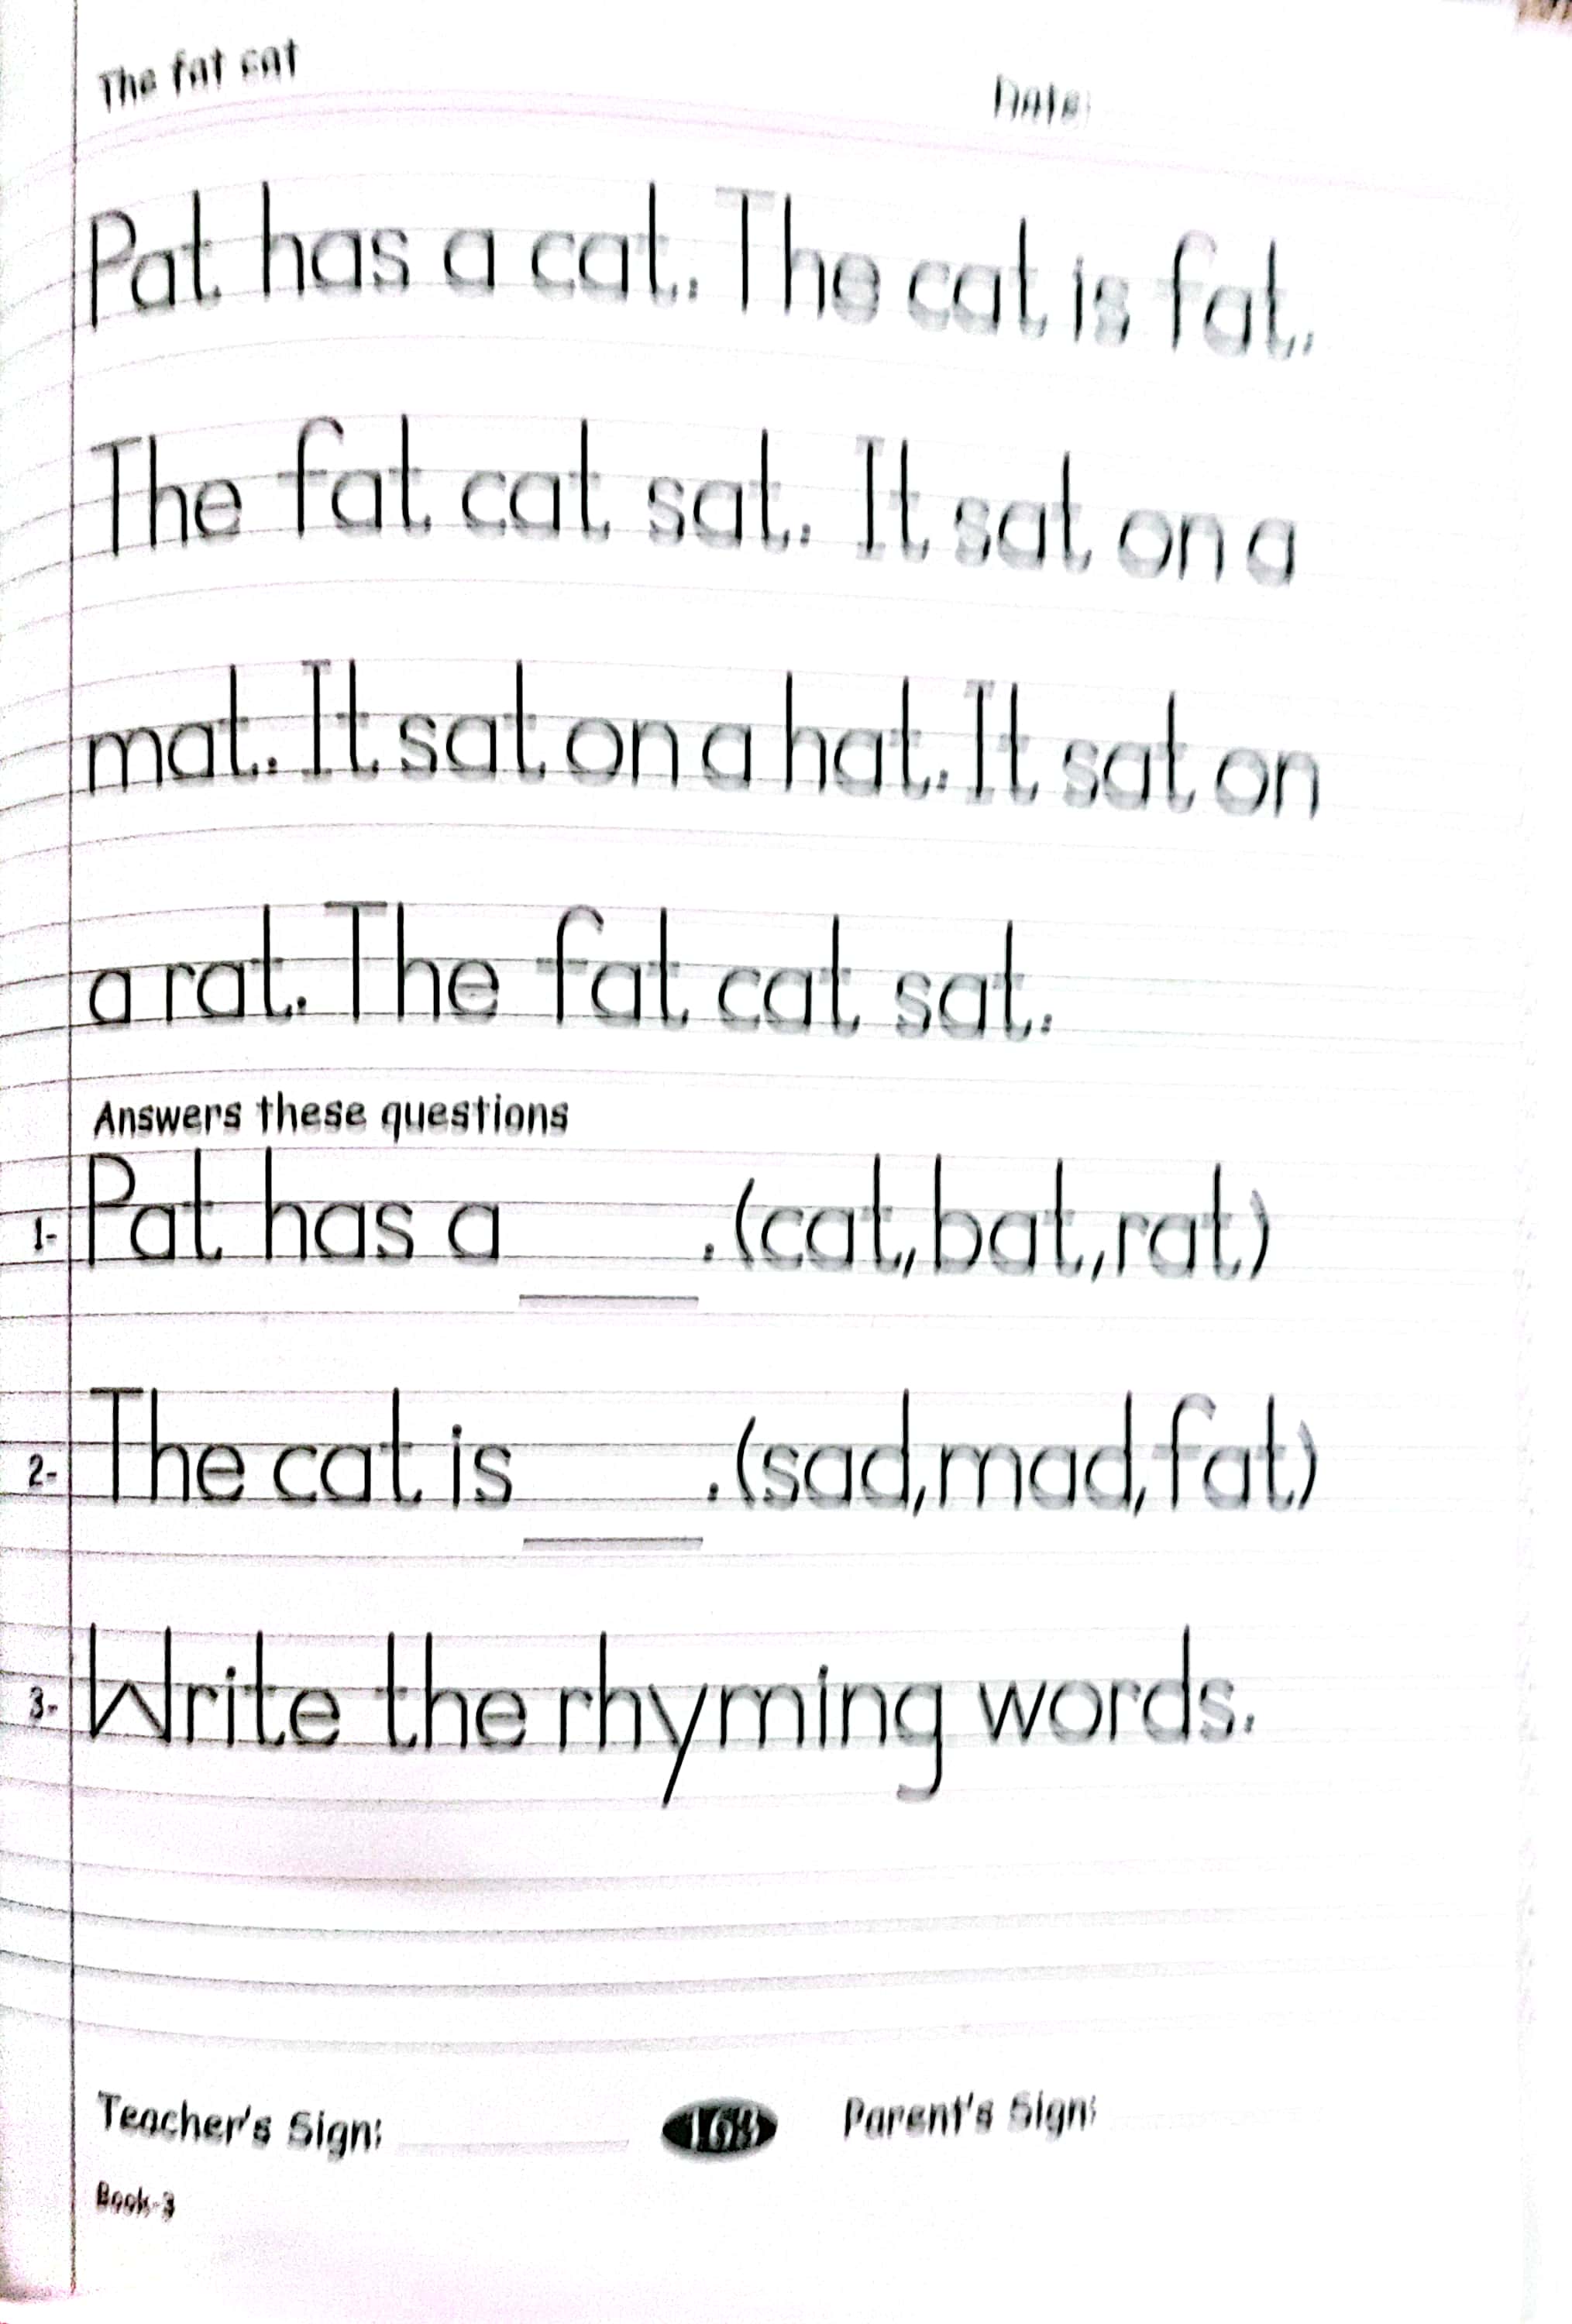 The fat cat
Date:
Pat has a cat. The cat is fat.
The fat cat sat. It sat on a
mat. It sat on a hat. It sat on
a rat. The fat cat sat.
Answers these questions
1- Pat has a ____. (cat, bat, rat)
2- The cat is ____. (sad, mad, fat)
3- Write the rhyming words.
Teacher's Sign: ____ 168 Parent's Sign:
Book-3